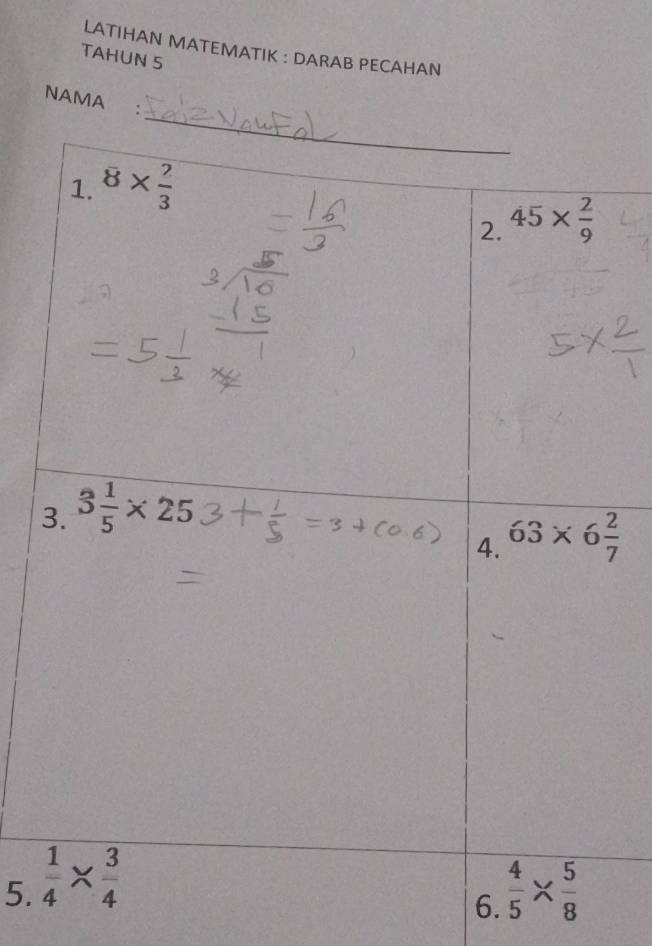 LATIHAN MATEMATIK : DARAB PECAHAN
TAHUN 5
NAMA : Faiz Naufal
1. 8 × 2/3
= 16/3
3 √16
5
-15
1
= 5 1/3
2. 45 × 2/9
5 × 2/1
3. 3 1/5 × 25 3 + 1/5 = 3 + (0.6)
=
4. 63 × 6 2/7
5. 1/4 × 3/4
6. 4/5 × 5/8